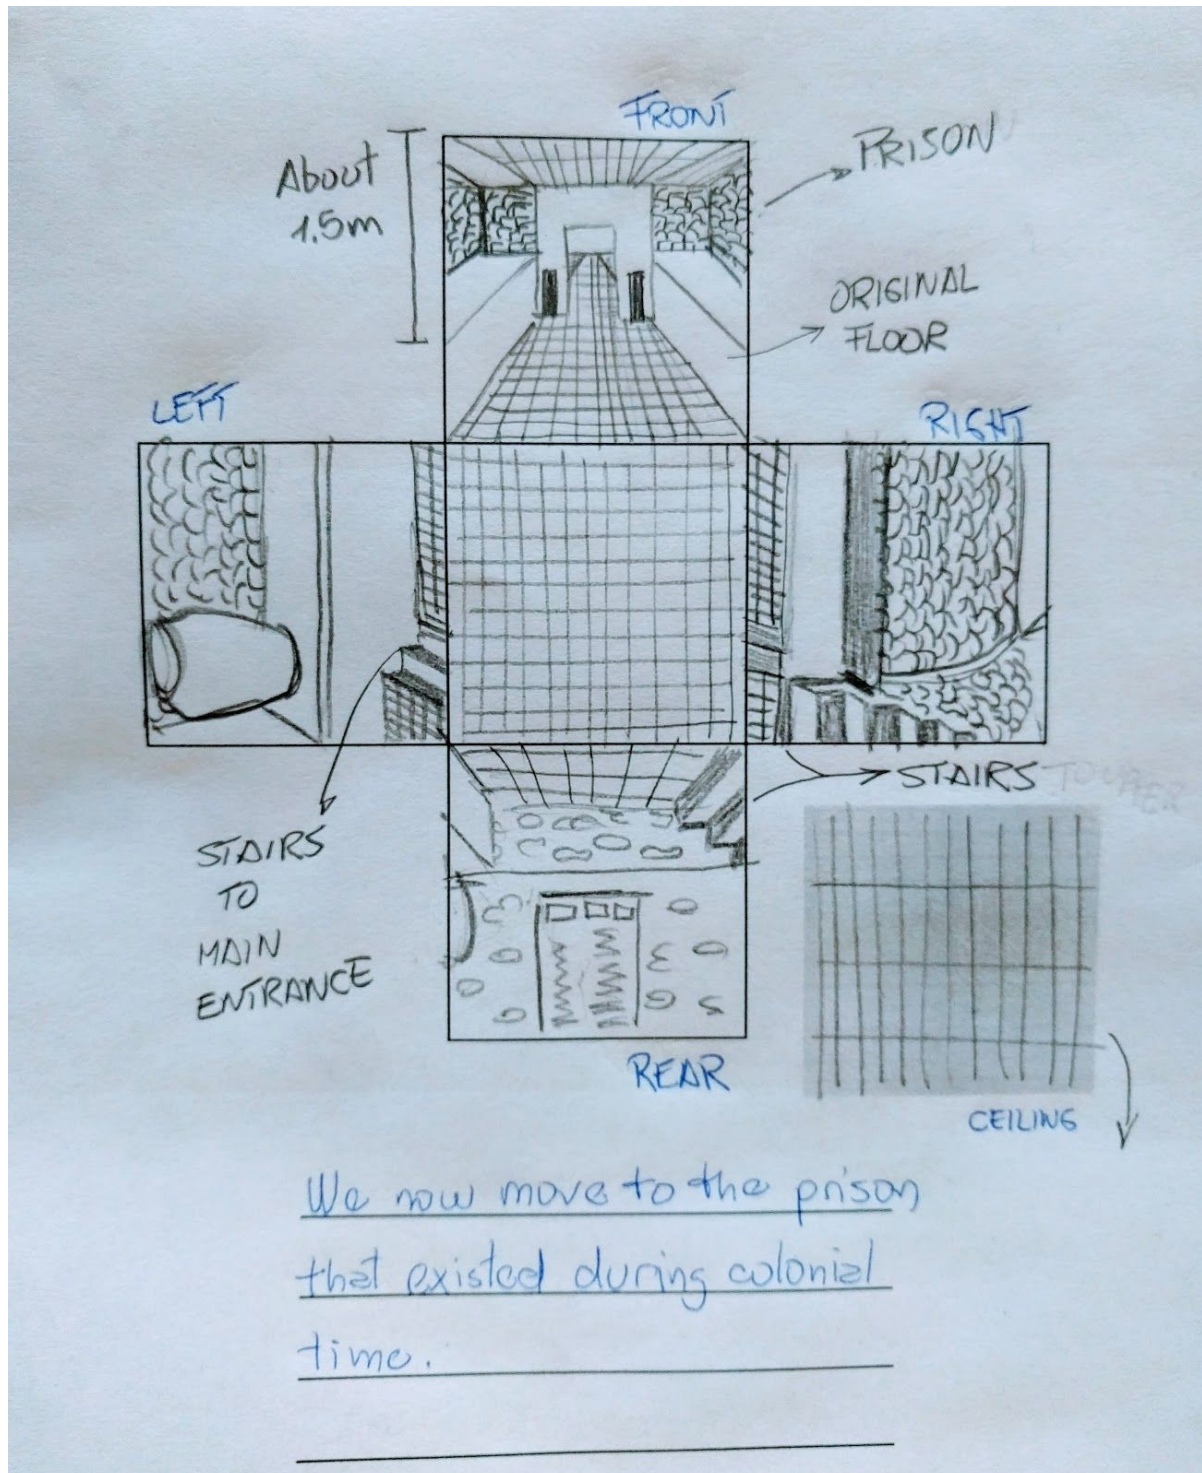 FRONT
PRISON
About
1.5m
ORIGINAL
FLOOR
LEFT
RIGHT
STAIRS TO UPPER
STAIRS
TO
MAIN
ENTRANCE
REAR
CEILING
We now move to the prison
that existed during colonial
time.